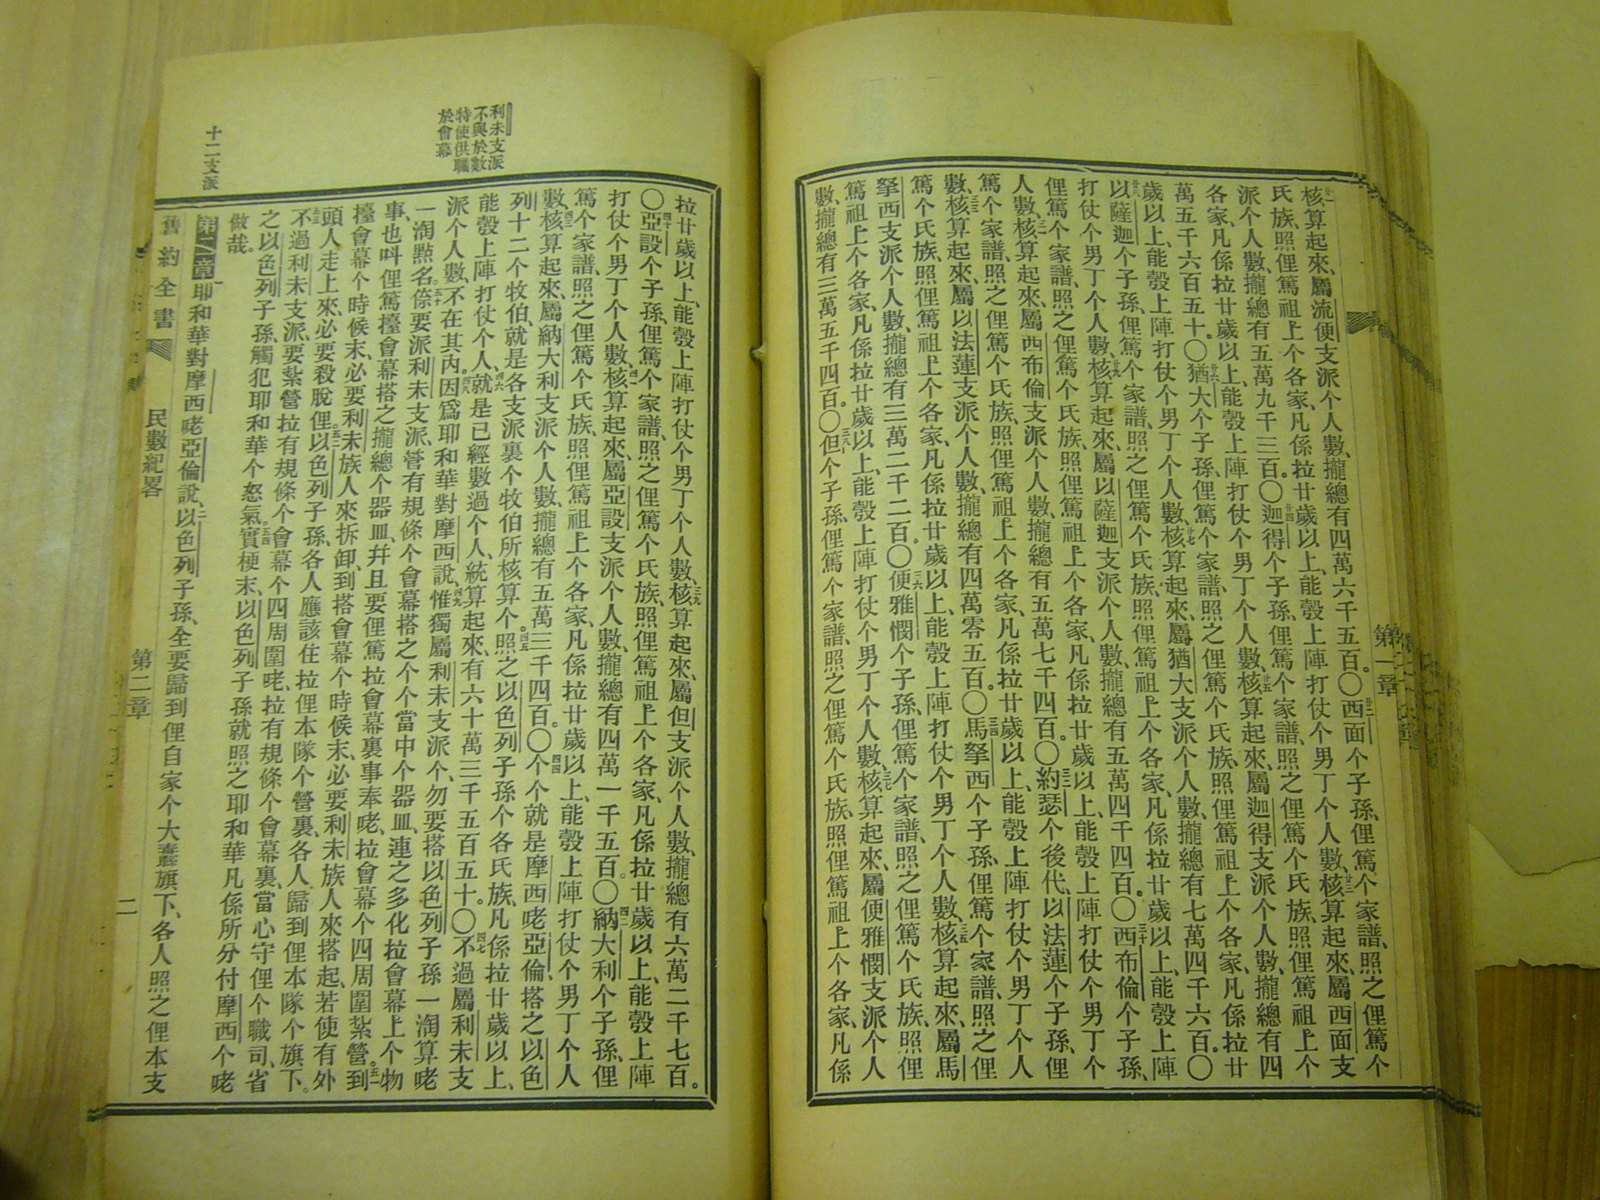 第一章
核算起來、屬流便支派个人數、攏總有四萬六千五百。〇西面个子孫、俚篤个家譜、照之俚篤个
氏族、照俚篤祖上个各家、凡係拉廿歲以上、能彀上陣打仗个男丁个人數、核算起來、屬西面支
派个人數、攏總有五萬九千三百。〇迦得个子孫、俚篤个家譜、照之俚篤个氏族、照俚篤祖上个
各家、凡係拉廿歲以上、能彀上陣打仗个男丁个人數、核算起來、屬迦得支派个人數、攏總有四
萬五千六百五十。〇猶大个子孫、俚篤个家譜、照之俚篤个氏族、照俚篤祖上个各家、凡係拉廿
歲以上、能彀上陣打仗个男丁个人數、核算起來、屬猶大支派个人數、攏總有七萬四千六百。〇
以薩迦个子孫、俚篤个家譜、照之俚篤个氏族、照俚篤祖上个各家、凡係拉廿歲以上、能彀上陣
打仗个男丁个人數、核算起來、屬以薩迦支派个人數、攏總有五萬四千四百。〇西布倫个子孫、
俚篤个家譜、照之俚篤个氏族、照俚篤祖上个各家、凡係拉廿歲以上、能彀上陣打仗个男丁个
人數、核算起來、屬西布倫支派个人數、攏總有五萬七千四百。〇約瑟个後代、以法蓮个子孫、俚
篤个家譜、照之俚篤个氏族、照俚篤祖上个各家、凡係拉廿歲以上、能彀上陣打仗个男丁个人
數、核算起來、屬以法蓮支派个人數、攏總有四萬零五百。〇馬拏西个子孫、俚篤个家譜、照之俚
篤个氏族、照俚篤祖上个各家、凡係拉廿歲以上、能彀上陣打仗个男丁个人數、核算起來、屬馬
拏西支派个人數、攏總有三萬二千二百。〇便雅憫个子孫、俚篤个家譜、照之俚篤个氏族、照俚
篤祖上个各家、凡係拉廿歲以上、能彀上陣打仗个男丁个人數、核算起來、屬便雅憫支派个人
數、攏總有三萬五千四百。〇但个子孫、俚篤个家譜、照之俚篤个氏族、照俚篤祖上个各家、凡係
拉廿歲以上、能彀上陣打仗个男丁个人數、核算起來、屬但支派个人數、攏總有六萬二千七百。
〇亞設个子孫、俚篤个家譜、照之俚篤个氏族、照俚篤祖上个各家、凡係拉廿歲以上、能彀上陣
打仗个男丁个人數、核算起來、屬亞設支派个人數、攏總有四萬一千五百。〇納大利个子孫、俚
篤个家譜、照之俚篤个氏族、照俚篤祖上个各家、凡係拉廿歲以上、能彀上陣打仗个男丁个人
數、核算起來、屬納大利支派个人數、攏總有五萬三千四百。〇个个就是摩西咾亞倫、搭之以色
列十二个牧伯、就是各支派裏个牧伯、所核算个。照之以色列子孫个各氏族、凡係拉廿歲以上、
能彀上陣打仗个人、就是已經數過个人、統算起來、有六十萬三千五百五十。〇不過屬利未支
派个人數、不在其內。因爲耶和華對摩西說、惟獨屬利未支派个、勿要搭以色列子孫一淘算咾
一淘點名。倷要派利未支派、管有規條个會幕搭之个个當中个器皿、連之多化拉會幕上个物
事、也叫俚篤擡會幕搭之攏總个器皿、幷且要俚篤拉會幕裏事奉咾、拉會幕个四周圍紮營。到
擡會幕个時候末、必要利未族人來拆卸、到搭會幕个時候末、必要利未族人來搭起、若使有外
頭人走上來、必要殺脫俚。以色列子孫、各人應該住拉俚本隊个營裏、各人歸到俚本隊个旗下。
不過利未支派、要紮營拉有規條个會幕个四周圍咾、拉有規條个會幕裏、當心守俚个職司、省
之以色列子孫、觸犯耶和華个怒氣。實梗末、以色列子孫就照之耶和華凡係所分付摩西个咾
做哉。
第二章耶和華對摩西咾亞倫說、以色列子孫、全要歸到俚自家个大纛旗下、各人照之俚本支
利未支派
不與於數
特使供職
於會幕
十二支派
舊約全書　民數紀畧　第二章　二